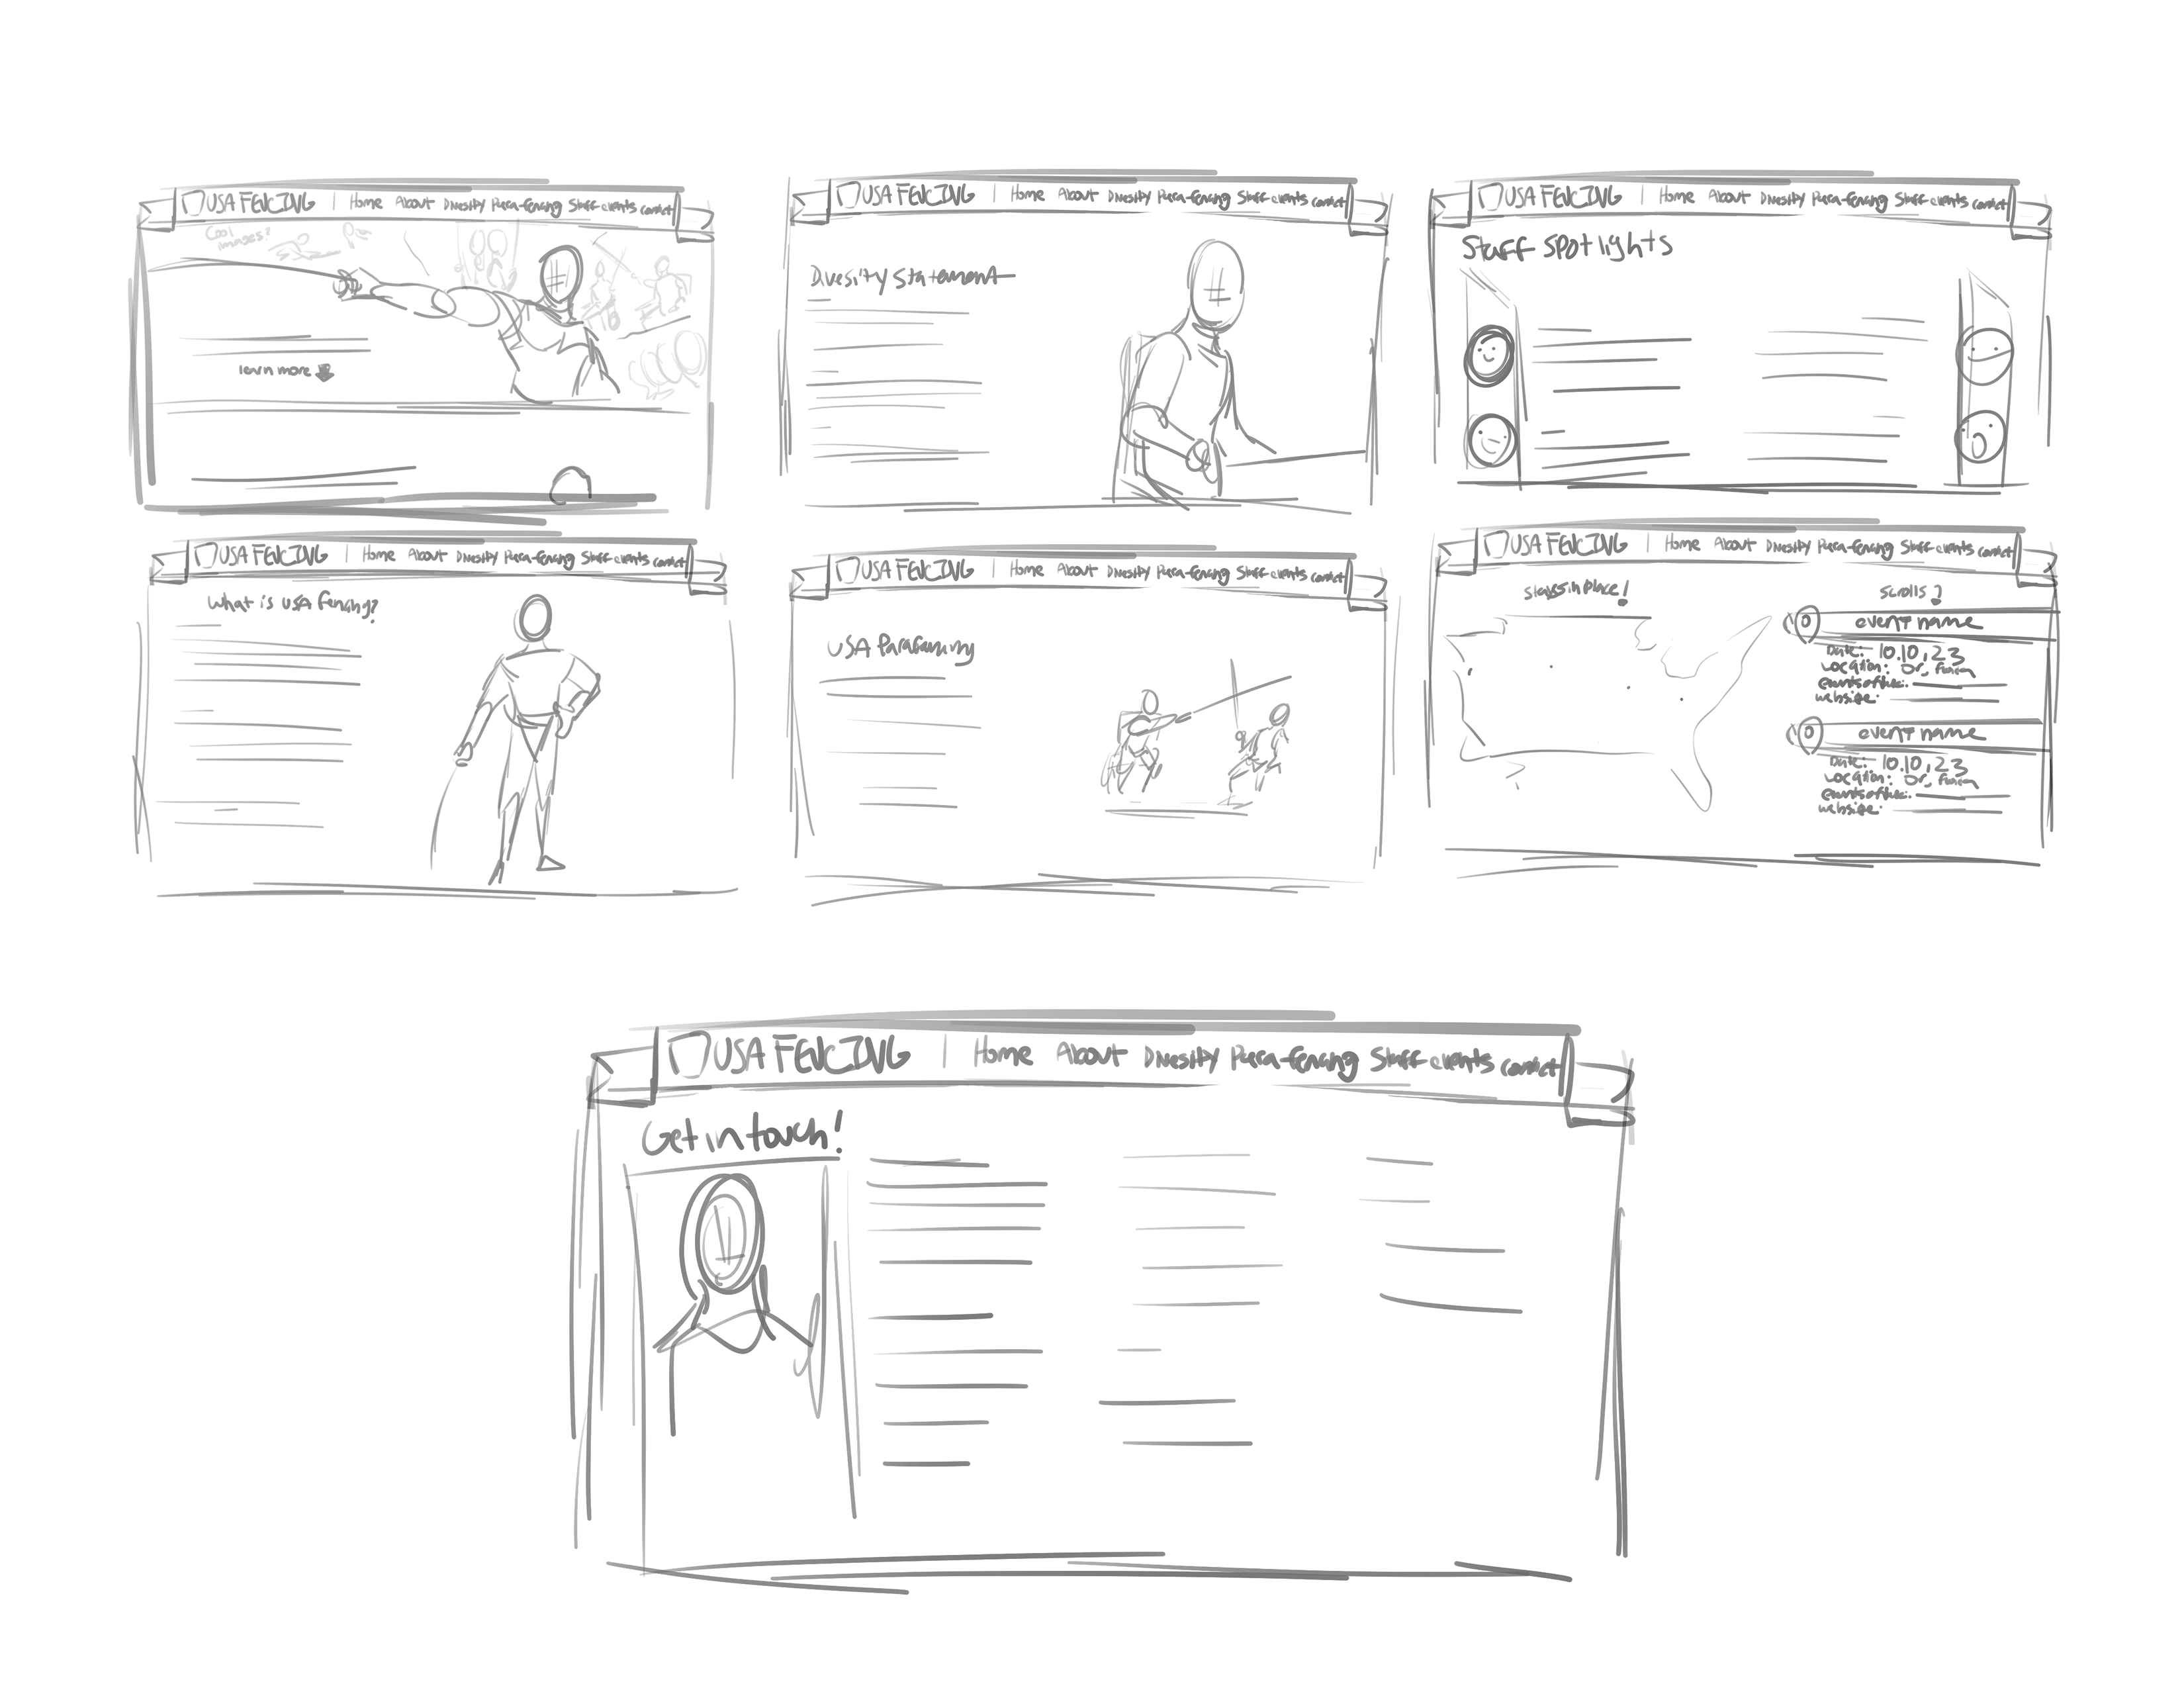 USA FENCING | Home About Diversity Para-fencing Staff events contact
Cool
images?
learn more
USA FENCING | Home About Diversity Para-fencing Staff events contact
Diversity Statement
USA FENCING | Home About Diversity Para-fencing Staff events contact
Staff Spotlights
USA FENCING | Home About Diversity Para-fencing Staff events contact
What is USA fencing?
USA FENCING | Home About Diversity Para-fencing Staff events contact
USA Parafencing
USA FENCING | Home About Diversity Para-fencing Staff events contact
stays in place!
scrolls?
event name
Date: 10.10.23
Location:
website:
event name
Date: 10.10.23
Location:
website:
USA FENCING | Home About Diversity Para-fencing Staff events contact
Get in touch!